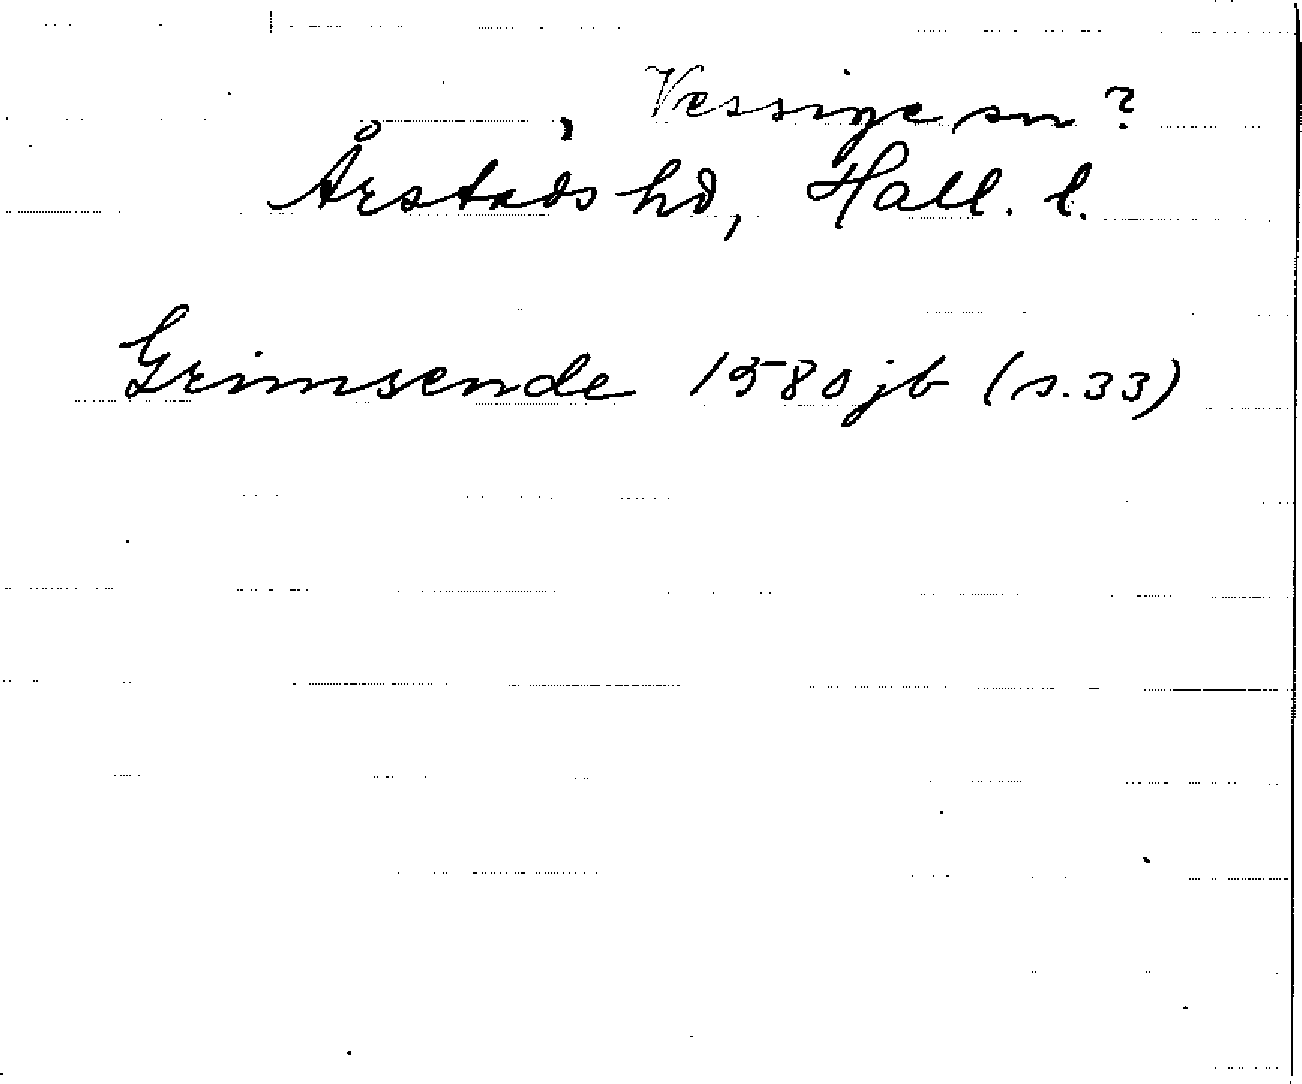 Vessige sn?
Årstads hd, Hall. l.
Grimsende 1580 jb (s. 33)